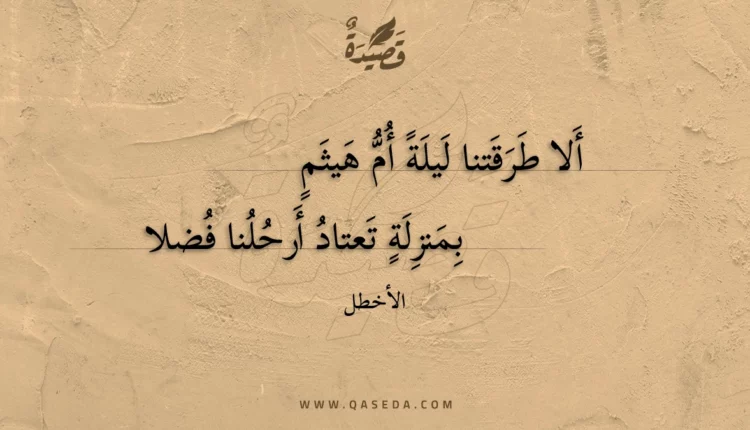 قَصِيدَةٌ
أَلا طَرَقَتنا لَيلَةً أُمُّ هَيثَمٍ
بِمَنزِلَةٍ تَعتادُ أَرحُلُنا فُضلا
الأخطل
WWW.QASEDA.COM